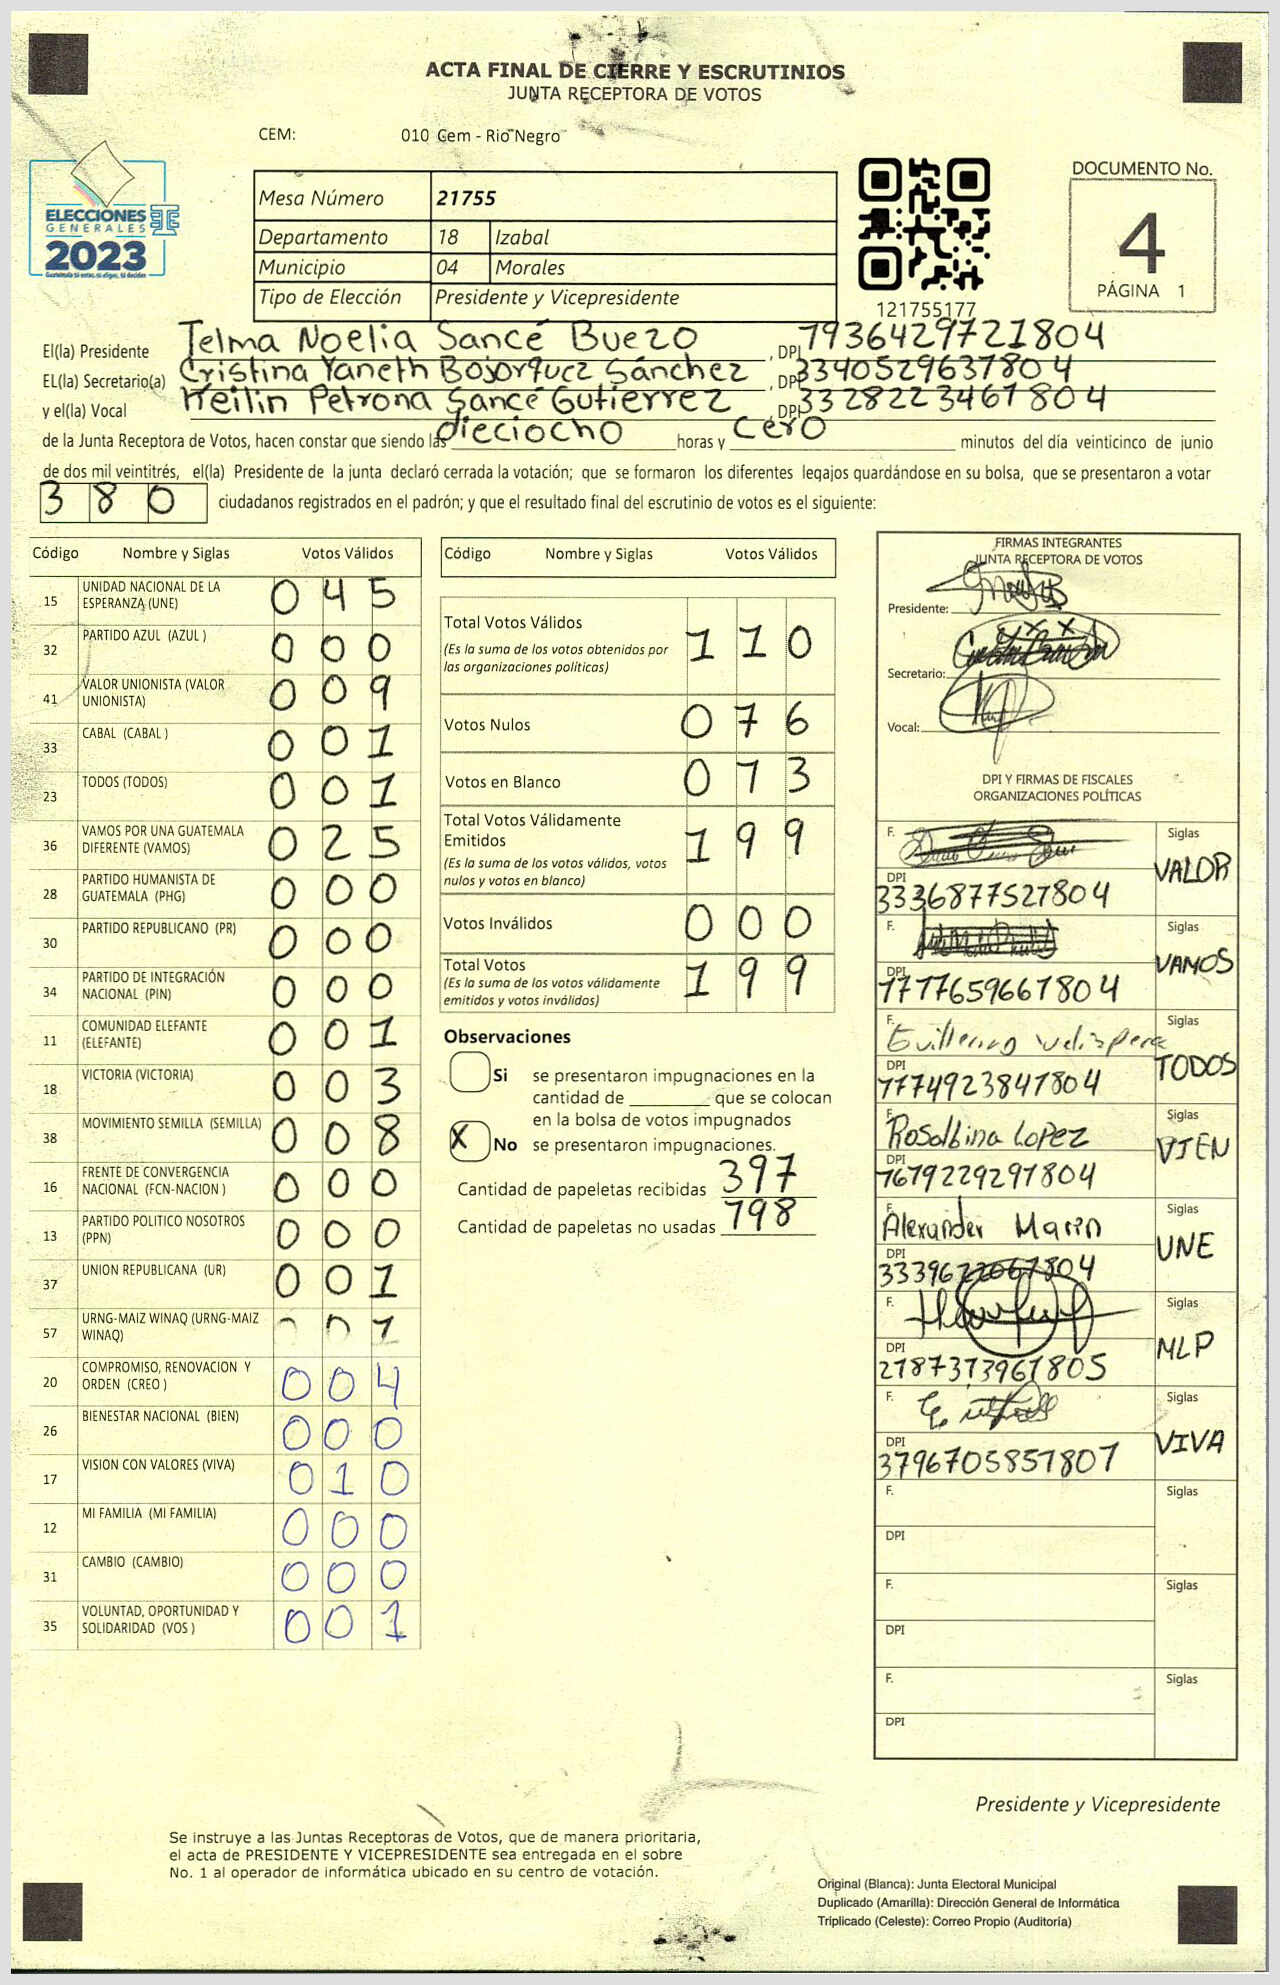 ACTA FINAL DE CIERRE Y ESCRUTINIOS
JUNTA RECEPTORA DE VOTOS
CEM: 010 Cem - Rio Negro
ELECCIONES
GENERALES
2023
Mesa Número 21755
Departamento 18 Izabal
Municipio 04 Morales
Tipo de Elección Presidente y Vicepresidente
121755177
DOCUMENTO No.
4
PÁGINA 1
El(la) Presidente Telma Noelia Sancé Buezo, DPI 7936429721804
EL(la) Secretario(a) Cristina Yaneth Bojorquez Sánchez, DPI 3340529637804
y el(la) Vocal Keilin Petrona Sancé Gutierrez, DPI 3328223461804
de la Junta Receptora de Votos, hacen constar que siendo las dieciocho horas y cero minutos del día veinticinco de junio
de dos mil veintitrés, el(la) Presidente de la junta declaró cerrada la votación; que se formaron los diferentes legajos guardándose en su bolsa, que se presentaron a votar
380 ciudadanos registrados en el padrón; y que el resultado final del escrutinio de votos es el siguiente:
Código Nombre y Siglas Votos Válidos
15 UNIDAD NACIONAL DE LA ESPERANZA (UNE) 045
32 PARTIDO AZUL (AZUL ) 000
41 VALOR UNIONISTA (VALOR UNIONISTA) 009
33 CABAL (CABAL ) 001
23 TODOS (TODOS) 001
36 VAMOS POR UNA GUATEMALA DIFERENTE (VAMOS) 025
28 PARTIDO HUMANISTA DE GUATEMALA (PHG) 000
30 PARTIDO REPUBLICANO (PR) 000
34 PARTIDO DE INTEGRACIÓN NACIONAL (PIN) 000
11 COMUNIDAD ELEFANTE (ELEFANTE) 001
18 VICTORIA (VICTORIA) 003
38 MOVIMIENTO SEMILLA (SEMILLA) 008
16 FRENTE DE CONVERGENCIA NACIONAL (FCN-NACION ) 000
13 PARTIDO POLITICO NOSOTROS (PPN) 000
37 UNION REPUBLICANA (UR) 001
57 URNG-MAIZ WINAQ (URNG-MAIZ WINAQ) 001
20 COMPROMISO, RENOVACION Y ORDEN (CREO ) 004
26 BIENESTAR NACIONAL (BIEN) 000
17 VISION CON VALORES (VIVA) 010
12 MI FAMILIA (MI FAMILIA) 000
31 CAMBIO (CAMBIO) 000
35 VOLUNTAD, OPORTUNIDAD Y SOLIDARIDAD (VOS ) 001
Código Nombre y Siglas Votos Válidos
Total Votos Válidos 110
(Es la suma de los votos obtenidos por
las organizaciones políticas)
Votos Nulos 076
Votos en Blanco 013
Total Votos Válidamente
Emitidos 199
(Es la suma de los votos válidos, votos
nulos y votos en blanco)
Votos Inválidos 000
Total Votos 199
(Es la suma de los votos válidamente
emitidos y votos inválidos)
Observaciones
Si se presentaron impugnaciones en la
cantidad de ________ que se colocan
en la bolsa de votos impugnados
X No se presentaron impugnaciones.
Cantidad de papeletas recibidas 397
Cantidad de papeletas no usadas 198
FIRMAS INTEGRANTES
JUNTA RECEPTORA DE VOTOS
Presidente:
Secretario:
Vocal:
DPI Y FIRMAS DE FISCALES
ORGANIZACIONES POLÍTICAS
F. Siglas VALOR
DPI 3336877521804
F. Siglas VAMOS
DPI 1717659661804
F. Guillermo Siglas TODOS
DPI 1774923841804
F. Rosalbina Lopez Siglas VIEN
DPI 7679229291804
F. Alexander Marin Siglas UNE
DPI 3339622061804
F. Siglas MLP
DPI 2187373961805
F. Siglas VIVA
DPI 3796705851807
F. Siglas
DPI
F. Siglas
DPI
F. Siglas
DPI
Presidente y Vicepresidente
Se instruye a las Juntas Receptoras de Votos, que de manera prioritaria,
el acta de PRESIDENTE Y VICEPRESIDENTE sea entregada en el sobre
No. 1 al operador de informática ubicado en su centro de votación.
Original (Blanca): Junta Electoral Municipal
Duplicado (Amarilla): Dirección General de Informática
Triplicado (Celeste): Correo Propio (Auditoría)